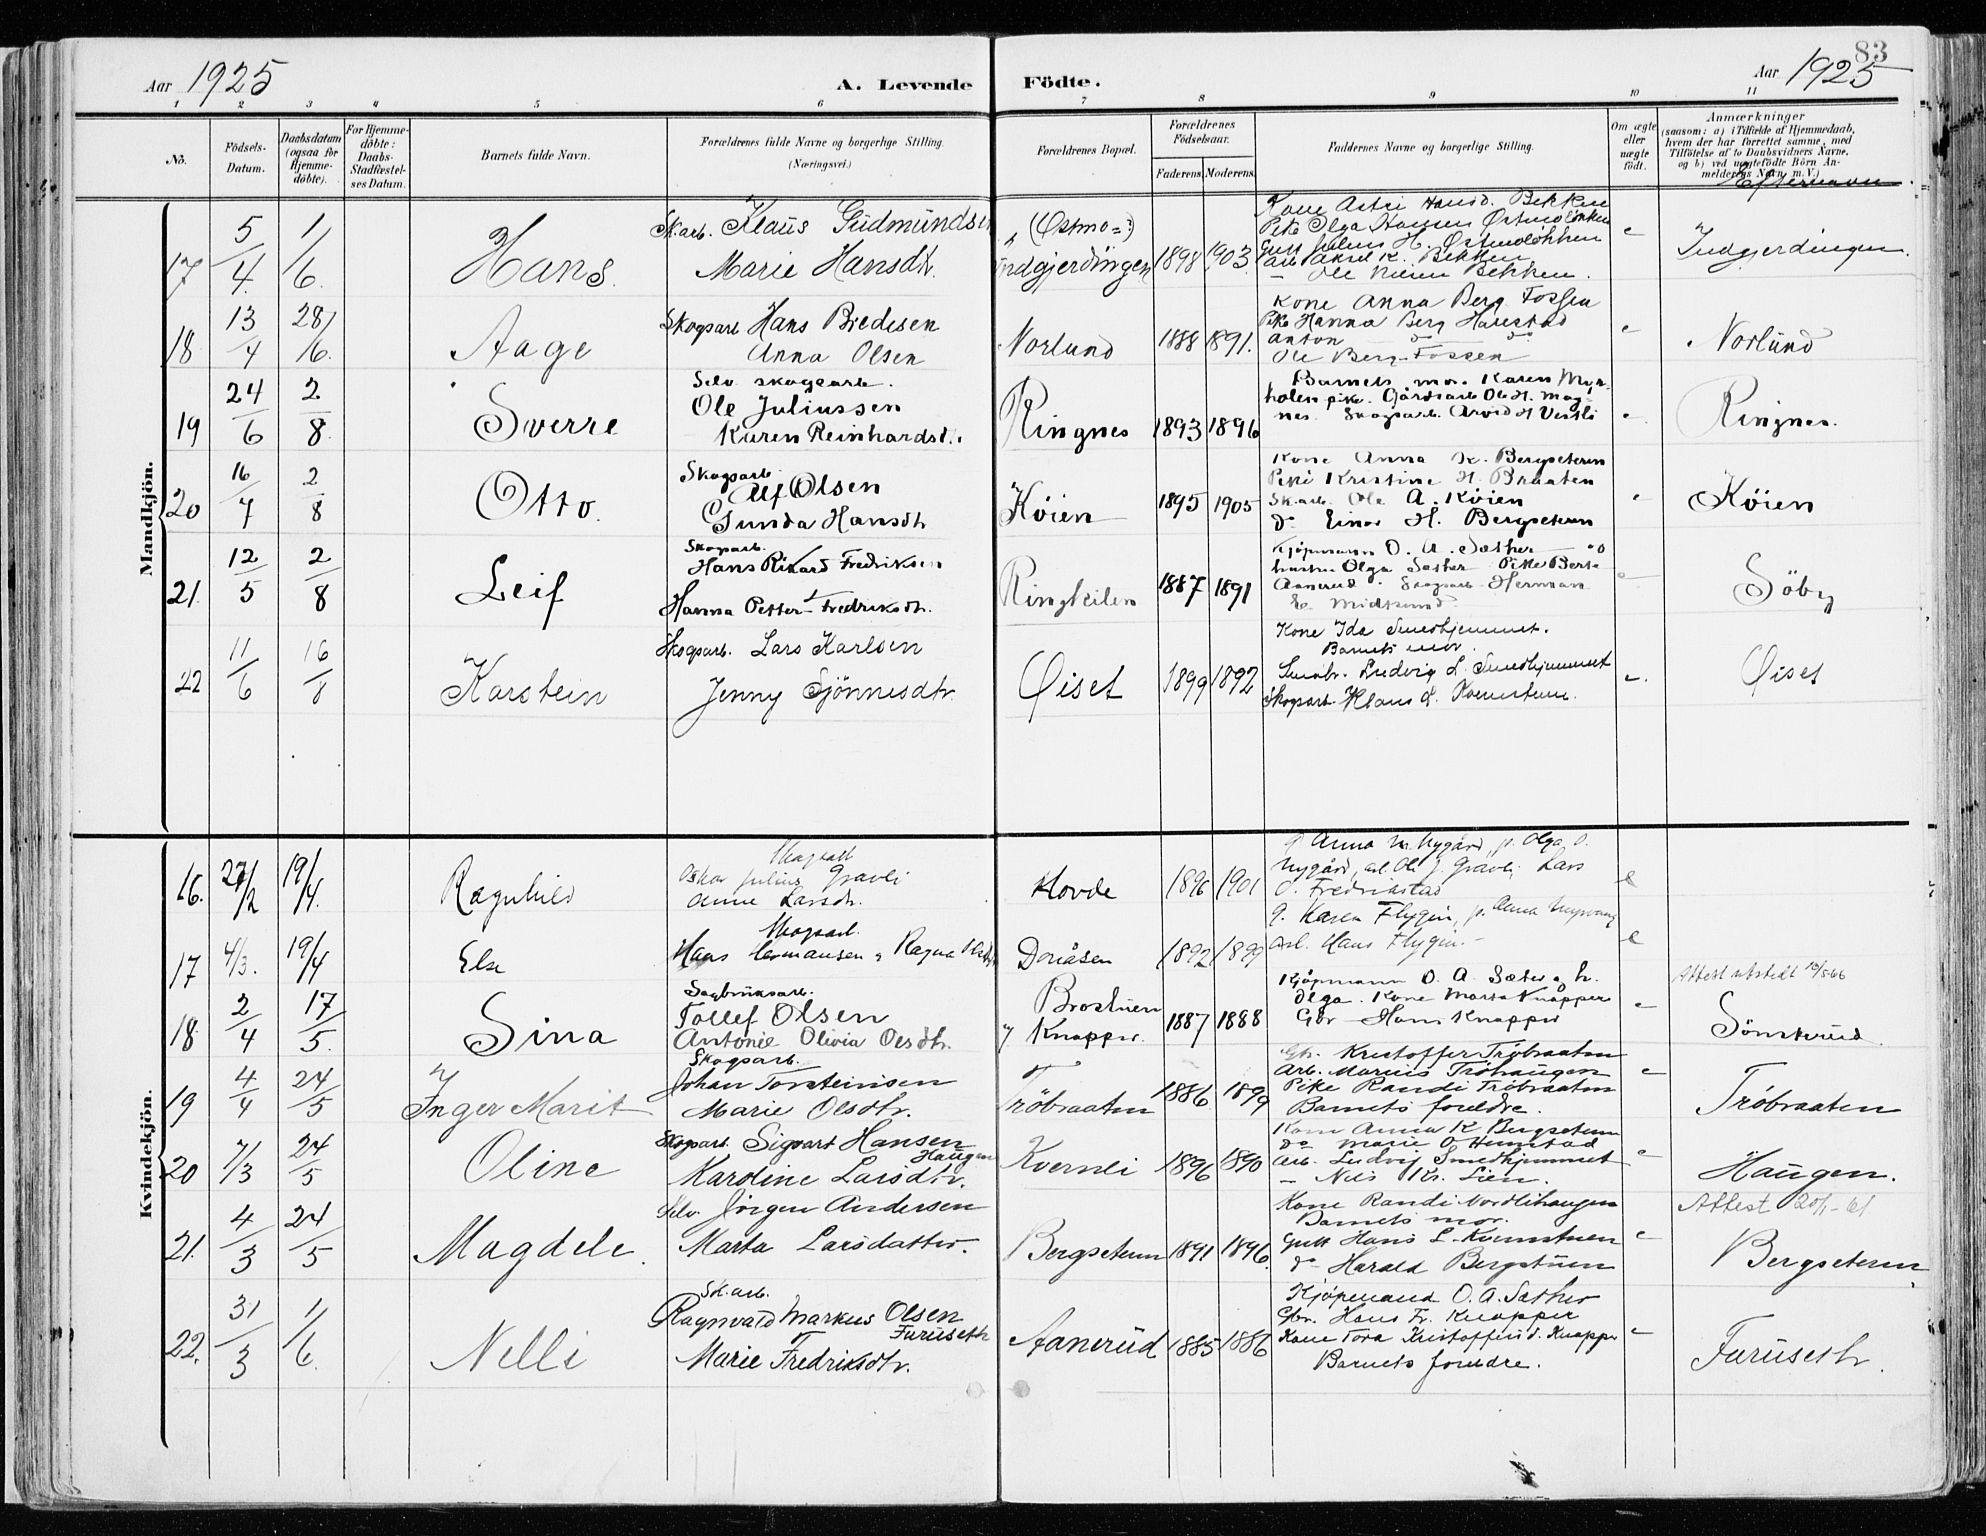 83
Aar 1925
A. Levende Födte.
Aar 1925
1 2 3 4 5 6 7 8 9 10 11
No.
Födsels-Datum.
Daabsdatum (ogsaa for Hjemme-döbte).
For Hjemme-döbte: Daabs-Stadfæstel-ses Datum.
Barnets fulde Navn.
Forældrenes fulde Navne og borgerlige Stilling. (Næringsvei.)
Forældrenes Bopæl.
Forældrenes Födselsaar.
Faderens Moderens
Faddernes Navne og borgerlige Stilling.
Om ægte eller uægte födt.
Anmærkninger
(saasom: a) i Tilfælde af Hjemmedaab,
hvem der har forrettet samme, med
Tilföielse af to Daabsvidners Navne.
og b) ved uægtefödte Börn An-
melderens Navn m. V.)
Efternavn
Mandkjön.
17 5/4 1/6 Hans Sk.arb. Klaus Gudmundsen
Marie Hansdtr.
(Østmo=:)
Indgjerdingen 1898 1903
Kone Astri Hansd. Bekken
Pike Olga Hansen Østmoløkken
Gutt Julius H. Østmoløkken
Arb. Aksel K. Bekken
— Ole Bekken.
e Indgjerdingen
18 13/4 28/6 Aage Skogsarb Hans Bredesen
Anna Olsen
Norlund 1888 1891.
Kone Anna Berg Fossen
Pike Hanna Berg Harestad
Anton do do
Ole Berg-Fossen
e Norlund
19 24/6 2/8 Sverre Selv. skogsarb.
Ole Juliussen
Karen Reinhardsd.
Ringnes 1893 1896
Barnets mor. Karen Myr-
holen pike. Gårdsarb Ole H. Mag-
nes. Skogsarb. Arvid H Vestli
e Ringnes.
20 16/7 2/8 Otto. Skogsarb.
Alf Olsen
Gunda Hansdtr
Køien 1895 1905
Kone Anna K. Bergseteren
Pike Kristine H. Braaten
Sk.arb. Ole A. Køien
do Einar H. Bergseteren
e Køien
21. 12/5 2/8 Leif Skogsarb.
Hans Rikard Fredriksen
Hanna Petter-Fredriksdtr.
Ringkilen 1887 1891
Kjøpmann O. A. Sæther og
hustru Olga Sæther. Pike Berte
Aanerud. Skogsarb. Herman
E. Midtsund
e Söby
22 11/6 16/8 Karstein Skogsarb. Lars Karlsen
Jenny Sjönnesdtr
Øiset 1899 1892
Kone Ida Smedhjemmet.
Barnets mor.
Ludvig L. Smedhjemmet
Skogsarb. Klaus L. Kvernstuen.
e. Øiset
Kvindekjön.
16. 27/2 19/4. Ragnhild Skogsarb
Oskar Julius Gravli
Anne Larsdtr.
Hovde 1896 1901
g. Anna M. Nygård, p. Olga O.
Nygård, arb. Ole J. Gravli, Lars
O. Fredrikstad
e
17 4/3. 19/4 Else Skogsarb.
Hans Hermansen & Ragna
Doråsen 1892 1899
g. Karen Flygin, p. Anna
Arb. Hans Flygin.-
e
Attest utstedt 13/5 66
18 2/4 17/5. Sina Sagbruksarb.
Tollef Olsen
Antonie Olivia Olsdtr.
Brostuen
Knapper. 1887 1888
Kjøpmann O. A. Sæter og h.
Olga. Kone Marta Knapper
Gbr — Hans Knapper
e Sönsterud.
19 4/4 24/5 Inger Marit Skogsarb.
Johan Torsteinsen
Marie Olsdtr.
Tröbraaten 1886 1899
Gbr. Kristoffer Tröbraaten
Arb. Marius Tröhaugen
Pike Randi Tröbraaten
Barnets foreldre.
e Tröbraaten
20 7/3 24/5 Oline Skogsarb. Sigvart Hansen
Haugen
Karoline Larsdtr.
Kvernli 1896 1890
Kone Anna K Bergseteren
do Marie O Hemstad
Arb. Ludvig Smedhjemmet
— Nils Kr. Lien.
e Haugen.
21. 4/3 24/5 Magdele. Selv. Jörgen Andersen
Marta Larsdatter.
Bergseteren 1891 1896.
Kone Randi Nordlihaugen
Barnets mor.
Gutt Hans L. Kvernstuen
do Harald Bergstuen
e Attest 20/1-61
Bergseteren
22. 31/3 1/6. Nelli Sk.arb.
Ragnvald Markus Olsen
Furuseth
Marie Fredriksdtr.
Aanerud 1885 1886
Kjøpmand O. A. Sæther
Gbr. Hans Fr. Knapper
Kone Tora Kristoffersd. Knapper
Barnets foreldre.
e Furuseth.